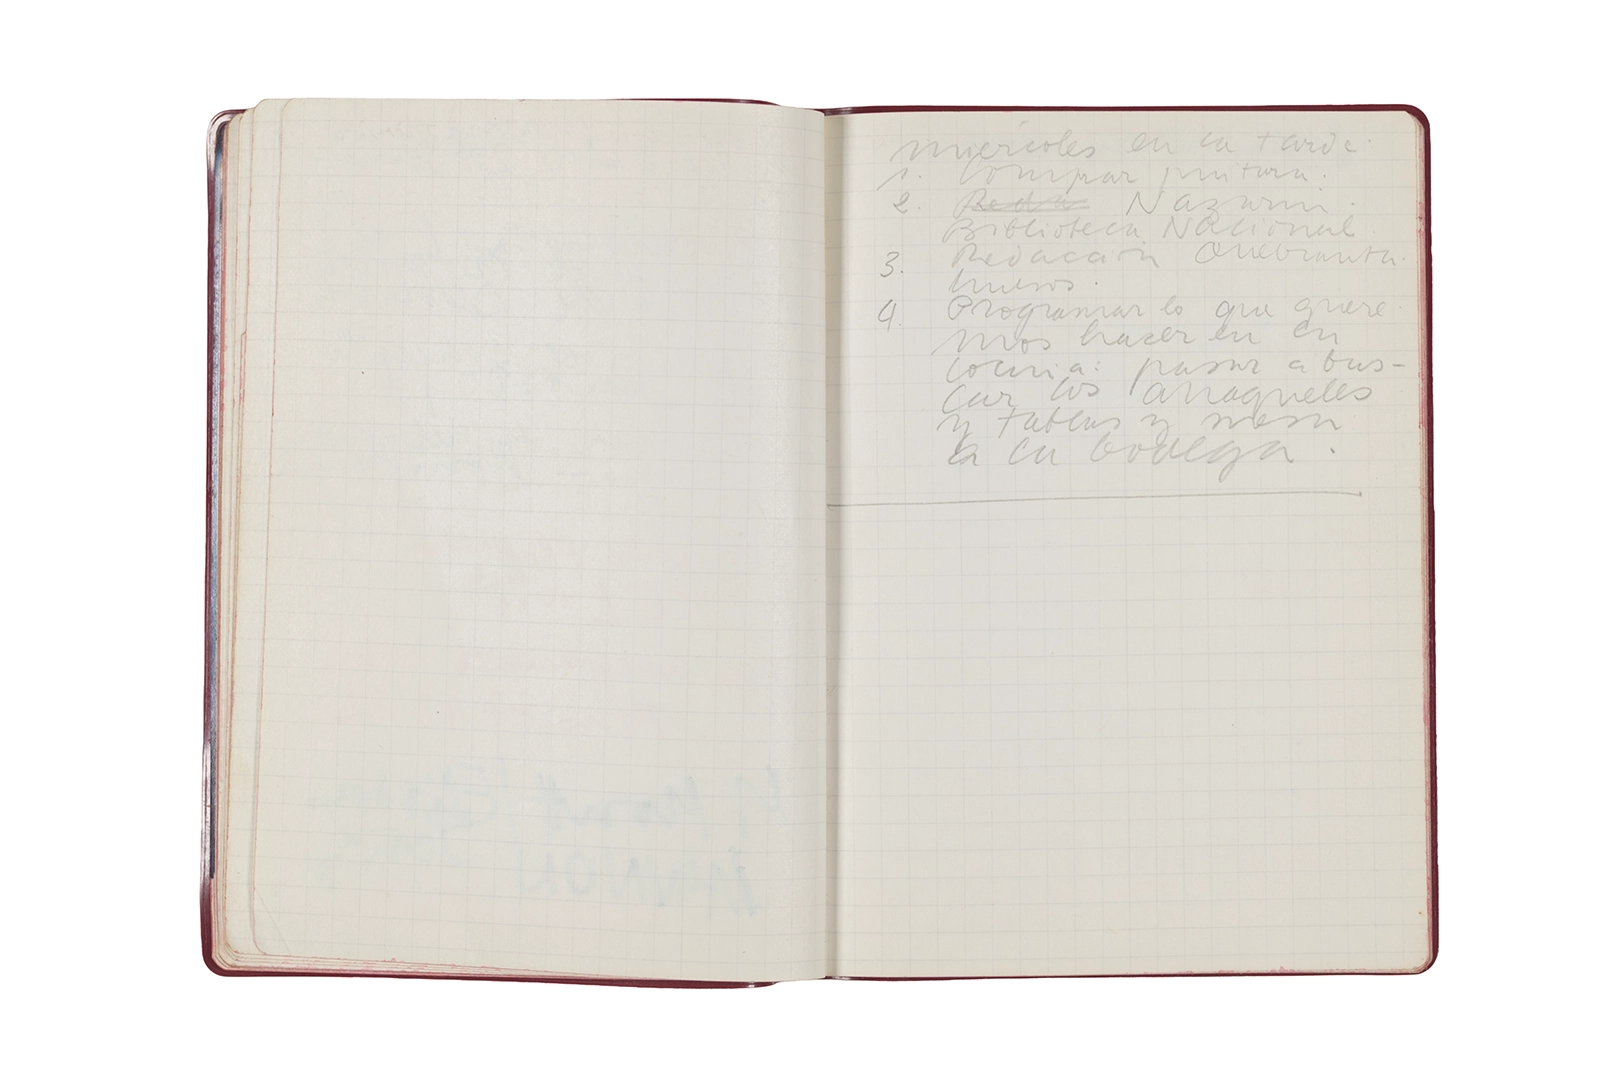 miércoles en la tarde.
1. Comprar pintura.
2. Reda Nazarin.
Biblioteca Nacional
3. Redacción Quebranta
huesos.
4. Programar lo que quere
mos hacer en la
cocina: pasar a bus-
car los anaqueles
y tablas y mesa
a la bodega.